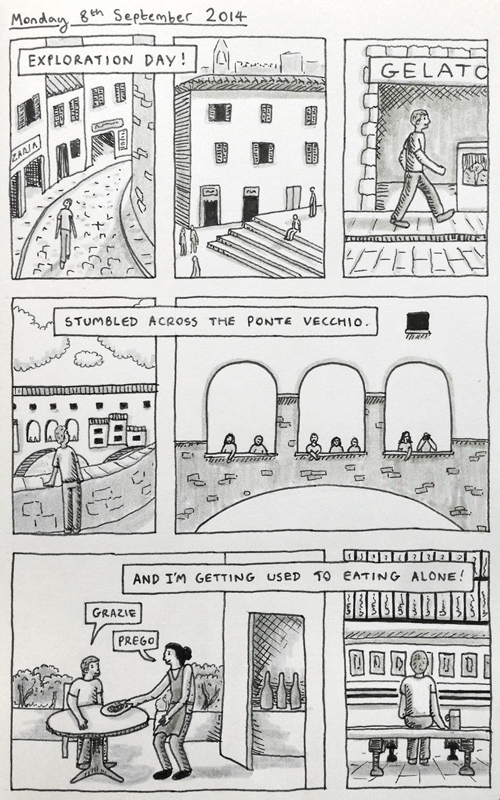 Monday 8th September 2014
EXPLORATION DAY!
ZARIA
GELATO
STUMBLED ACROSS THE PONTE VECCHIO.
AND I'M GETTING USED TO EATING ALONE!
GRAZIE
PREGO